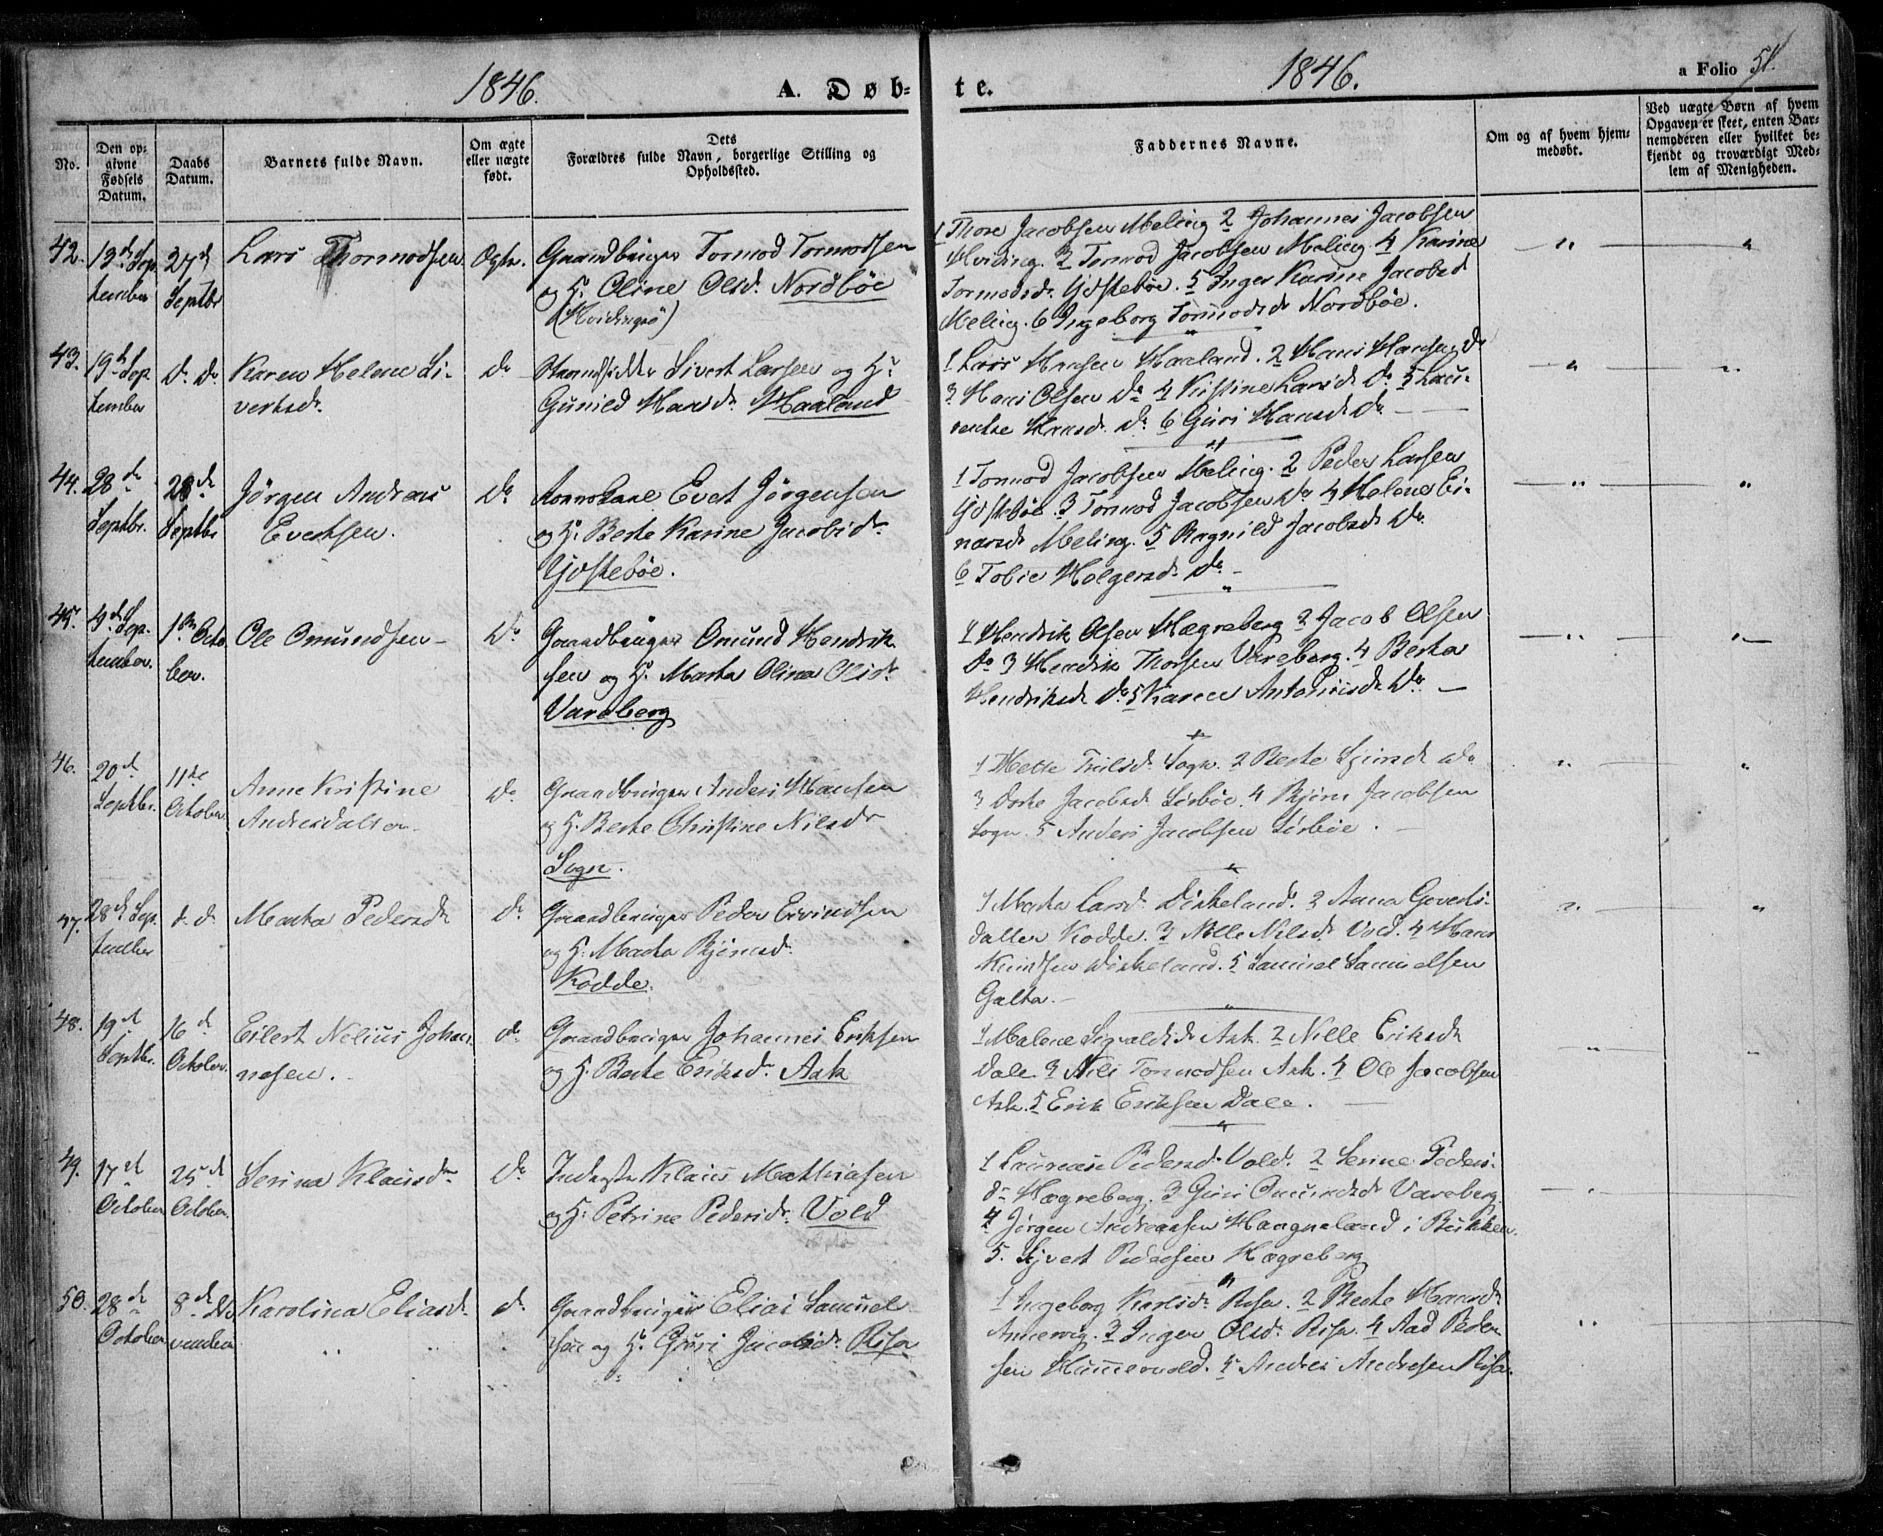 1846.
A. Døb-
te.
1846.
a Folio 51.
No.
Den op-
givne
Fødsels
Datum.
Daabs
Datum.
Barnets fulde Navn.
Om ægte
eller uægte
født.
Dets
Forældres fulde Navn, borgerlige Stilling og
Opholdssted.
Faddernes Navne.
Om og af hvem hjem-
medøbt.
Ved uægte Børn af hvem
Opgaven er skeet, enten Bar-
nemoderen eller hvilket be-
kjendt og troværdigt Med-
lem af Menigheden.
42.
tember
27de
Septbr
Lars Thormodsen
Ægte.
Gaardbruger Tormod Tormodsen
og H. Oline Olsd. Nordbøe
(Hvidingsø)
1 Thore Jacobsen Meling 2 Johannes Jacobsen
Hviding. 3 Tormod Jacobsen Meling 4 Karine
Tormodsd. 5 Inger Karine Jacobsd
Meling. 6 Ingeborg Tormodsd Nordbøe.
43.
19de Sep
tember
do do
Karen Helene Si-
vertsd.
do
Strandsidder Sivert Larsen og H.
Gunild Hansd. Haaland
1 Lars Hansen Haaland. 2 Hans Hansen do
3 Hans Olsen do 4 Kistine Larsd. do 5 Lau-
rentse Hansd. do 6 Guri Hansd. do
44.
28de
Septbr.
Septbr
Jørgen Andreas
Evertsen.
do
Evert Jørgensen
og H. Berte Karine Jacobsdr
1 Tormod Jacobsen Meling. 2 Peder Larsen
3 Tormod Jacobsen do 4 Helene Ei-
narsd. Meling. 5 Ragnild Jacobsd. do
6 Tobie Holgersd. do
45.
Sep.
tember.
1ste Octo
ber.
Ole Omundsen
do
Gaardbruger Omund Hendrik
sen og H. Marta Olina Olsdr
Vareberg
1 Hendrik Olsen Hægreberg 2 Jacob Olsen
do 3 Hendrik Thorsen Vareberg. 4 Berta
Hendriksd do 5 Karen do
46.
20de
Septbr.
11te
October
Anne Kristine
Andersdatter
do
Gaardbruger Anders Hansen
og H. Berte Christine Nilsdr
Sogn.
1 Mette Sogn. 2 Berte do
3 Dorte Jacobsd Sørbøe. 4 Bjørn Jacobsen
Sogn. 5 Anders Jacobsen Sørbøe.
47.
28de Sep
tember
d. d.
Marta Pedersd.
do
Gaardbruger Peder Eivindsen
og H. Marta Bjørnsd.
Kodde.
1 Marta Larsd. 2 Anna
datter Kodde. 3 Nille Nilsd. Vold. 4 Hans
Knudsen 5 Samuel Samuelsen
Galta.
48.
19de
Septbr.
16de
October.
Eilert Nelius Johan
nesen.
do
Gaardbruger Johannes Eriksen
og H. Berte Eriksd. Ask
1 Malene Sigvaldsd. Ask. 2 Nille Eriksd.
Dale 3 Nils Tormodsen Ask. 4 Ole Jacobsen
Ask. 5 Erik Eriksen Dale.
49.
17de
October
25de
October.
Serina Klausdr
do
Inderste Klaus Mathiasen
og H. Petrine Pedersdr. Vold
1 Pedersd. Vold. 2 Serine Peders-
dr Hægreberg. 3 Guri Omundsd. Vareberg.
4 Jørgen Andreassen i Bukken.
5. Sjvert Pedersen Hæggeberg
50.
28de
October
8de No
vember
Karolina Eliasd.
do
Gaardbruger Elias Samuel
sen og H. Guri Jacobsd. Risa
1 Ingeborg Karlsd. Risa. 2 Berte Hansd.
3 Inger Olsd. Risa. 4 Aad Peder
sen 5 Andres Andresen Risa.